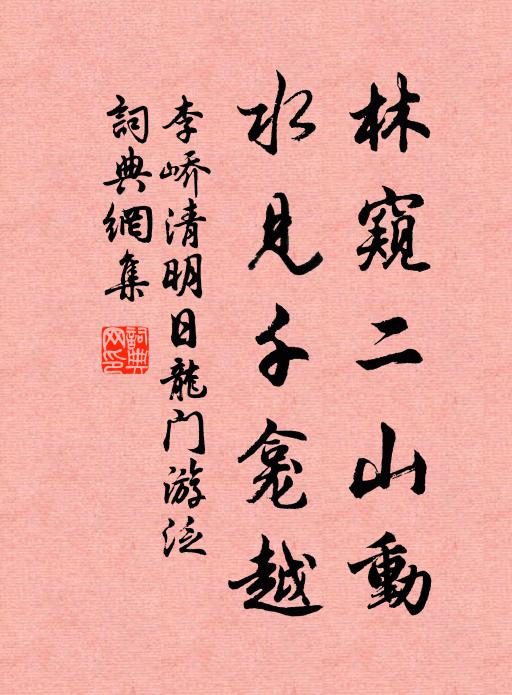 林窺二山動
水見千龕越
李嶠清明日龍门游泛
詞典網集
詞典网印